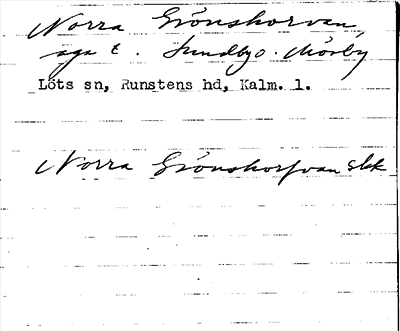 Norra Grönskorvan
äga t. Sundby o. Mörby
Löts sn, Runstens hd, Kalm. l.
Norra Grönskorfvan skk